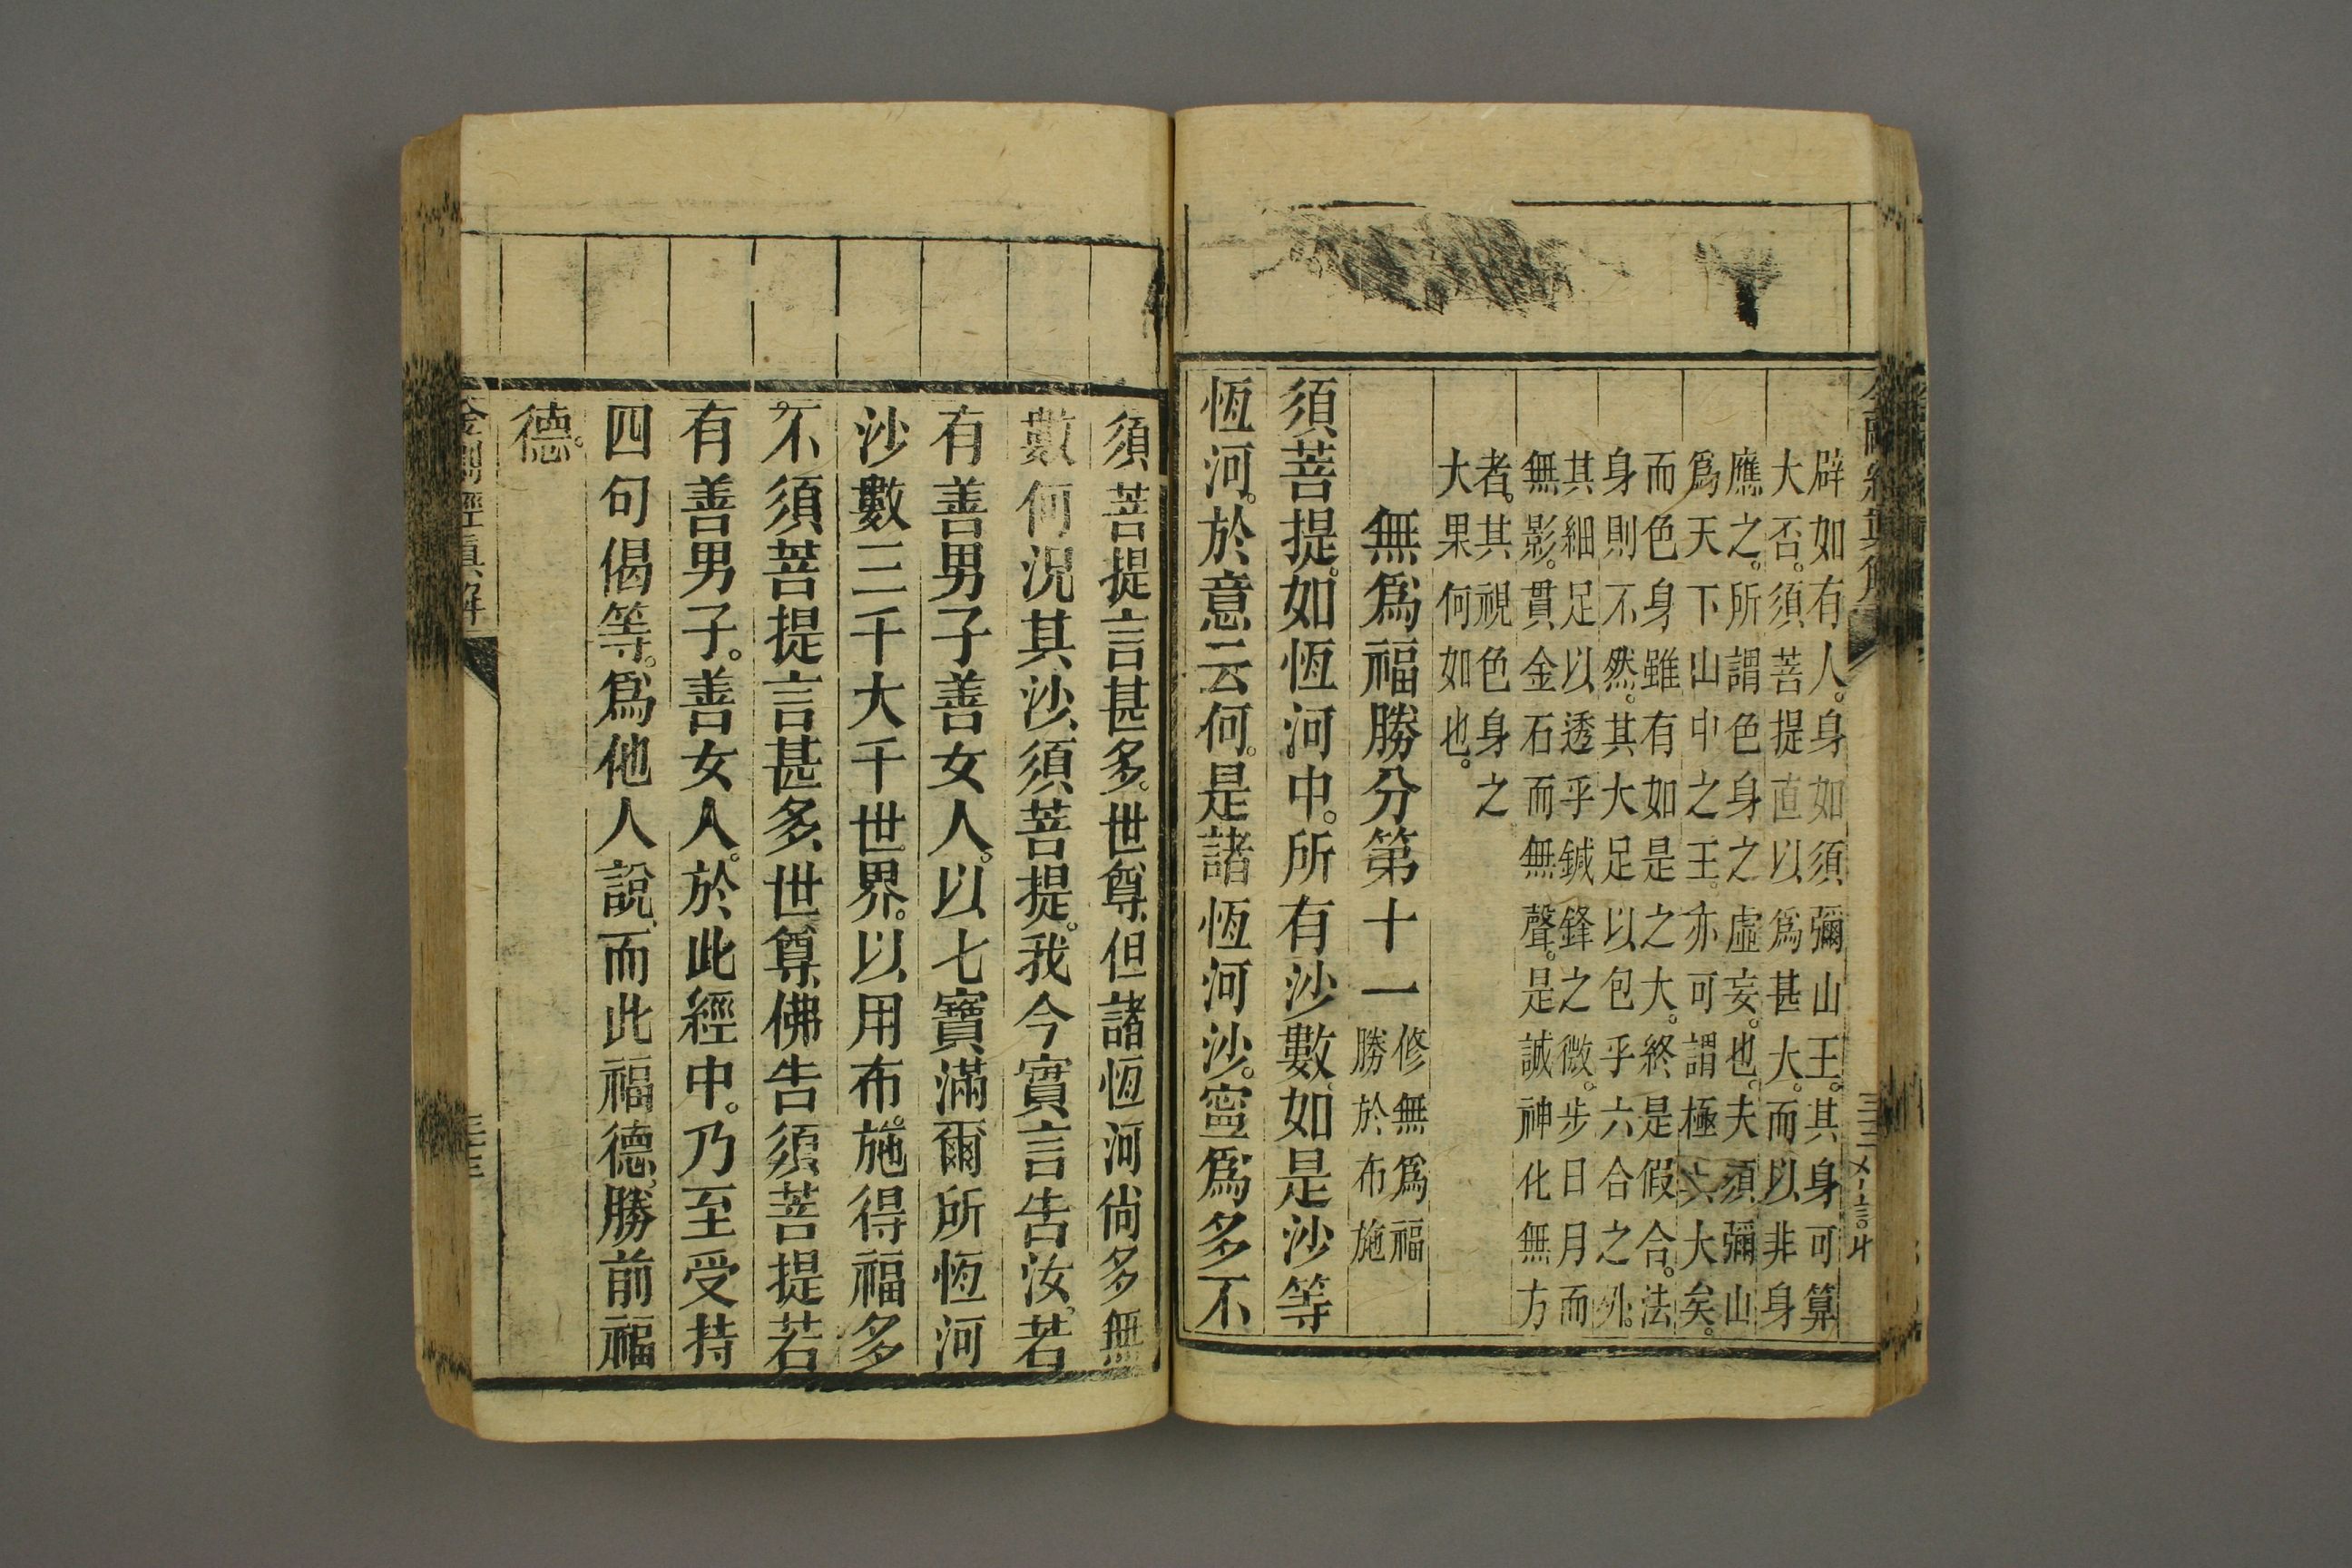 辟如有人。身如須彌山王。其身可算
大否。須菩提直以爲甚大。而以非身
應之。所謂色身之虛妄。也。夫須彌山
爲天下山中之王。亦可謂極其大矣。
而色身雖有如是之大。終是假合。法
身則不然。其大足以包乎六合之外。
其細足以透乎鍼鋒之微。步日月而
無影。貫金石而無聲。是誠神化無方
者。其視色身之
大果何如也。
無爲福勝分第十一
修無爲福
勝於布施
須菩提。如恆河中。所有沙數。如是沙等
恆河。於意云何。是諸恆河沙。寧爲多不
須菩提言甚多。世尊、但諸恆河尙多無
數何況其沙、須菩提。我今實言告汝。若
有善男子善女人。以七寶滿爾所恆河
沙數三千大千世界。以用布。施得福多
不。須菩提言甚多、世尊、佛告須菩提若
有善男子。善女人。於此經中。乃至受持
四句偈等。爲他人說、而此福德、勝前福
德。
金剛經眞解